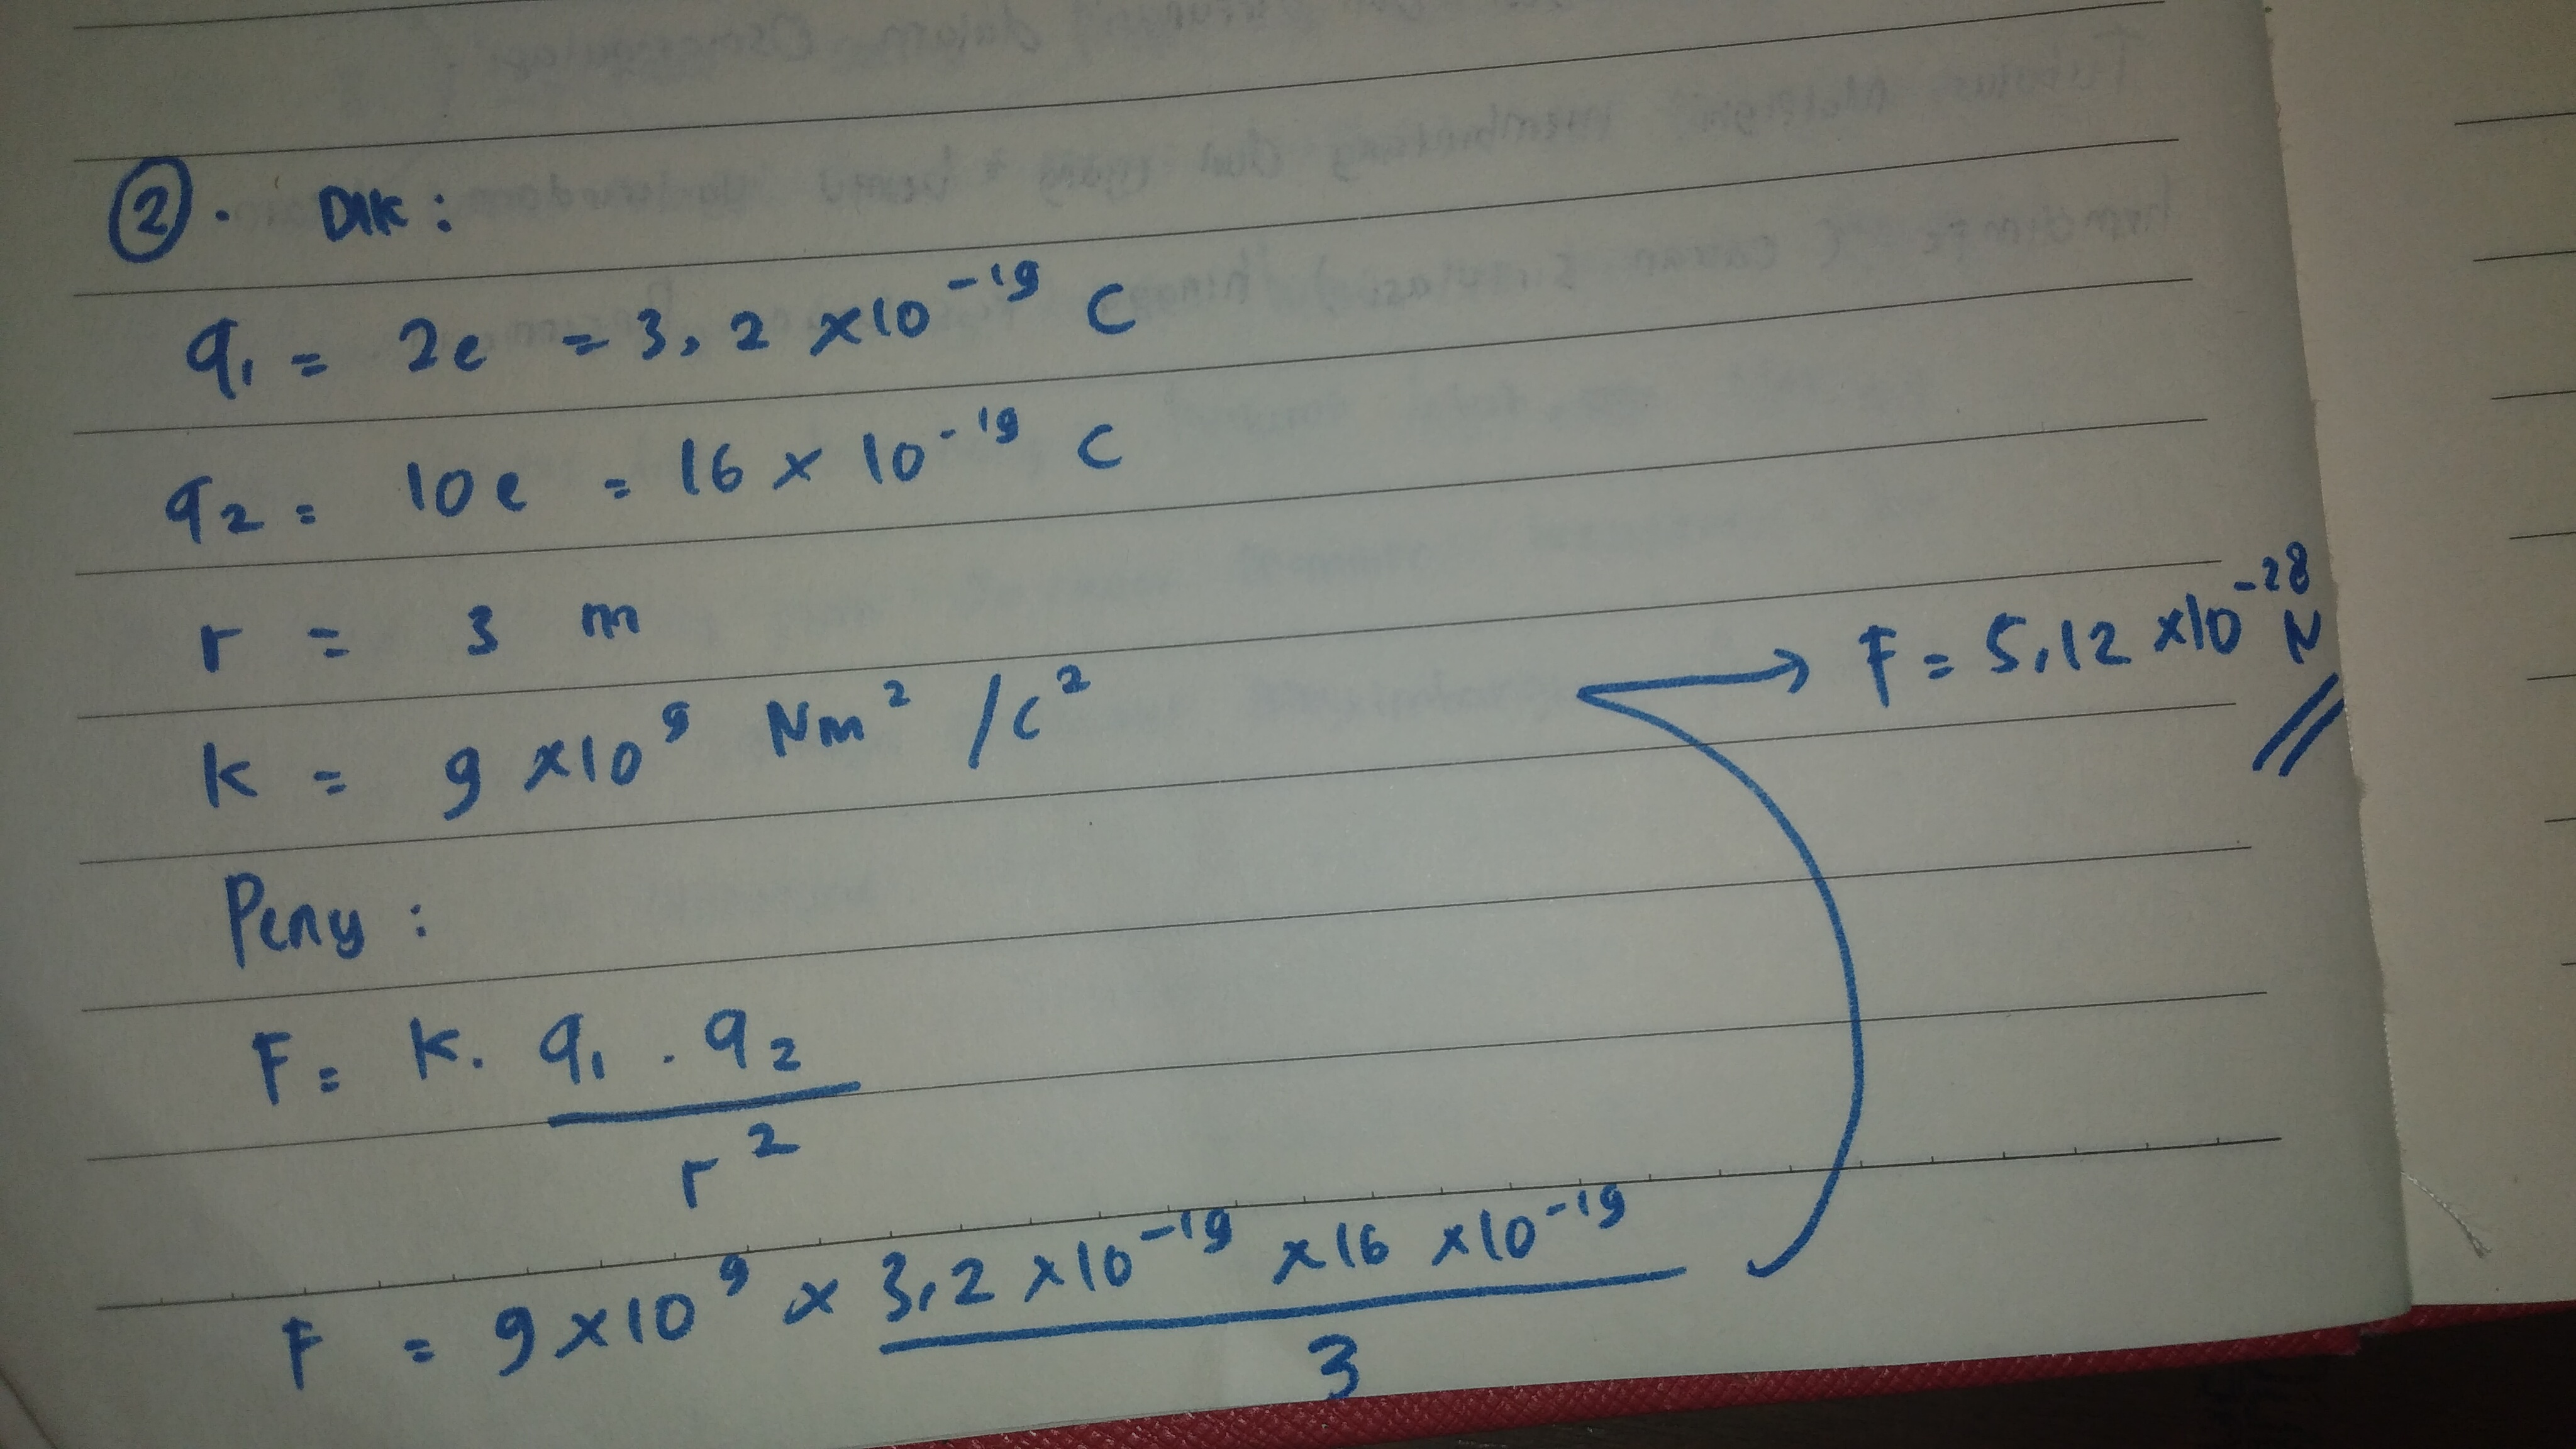 ②. DIK :
q₁ = 2e = 3,2 x10⁻¹⁹ C
q₂ = 10e = 16 x 10⁻¹⁹ C
r = 3 m
K = 9 x10⁹ Nm² /C²
Peny :
F = K. q₁ . q₂ / r²
F = 9x10⁹ x 3,2 x10⁻¹⁹ x16 x10⁻¹⁹ / 3
→ F = 5,12 x10⁻²⁸ N //